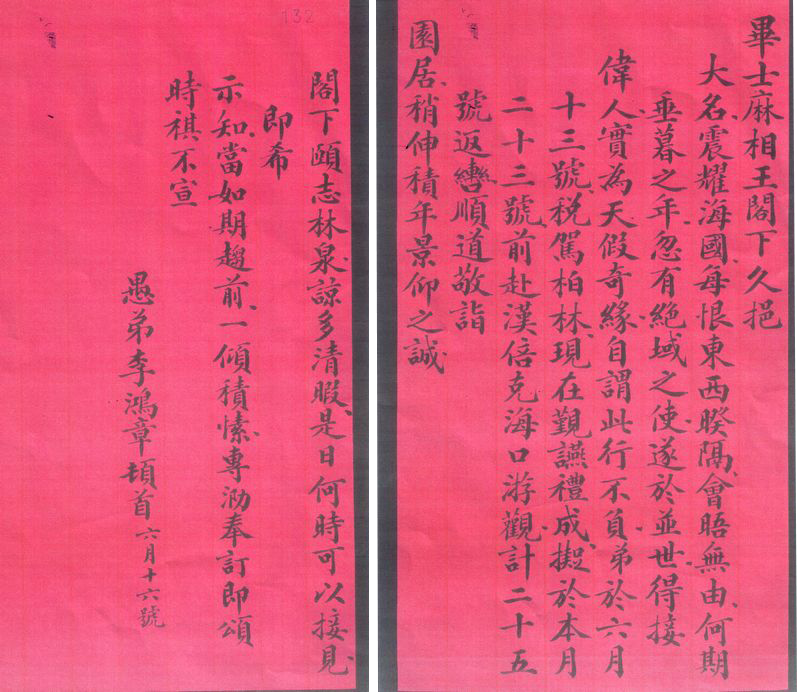 畢士麻相王閣下久挹
大名震耀海國每恨東西睽隔會晤無由何期
垂暮之年忽有絶域之使遂於並世得接
偉人實為天假奇緣自謂此行不負弟於六月
十三號税駕柏林現在覲讌禮成擬於本月
二十三號前赴漢倍克海口游觀計二十五
號返轡順道敬詣
園居稍伸積年景仰之誠
閣下頤志林泉諒多清暇是日何時可以接見
即希
示知當如期趨前一傾積愫專泐奉訂即頌
時祺不宣
愚弟李鴻章頓首 六月十六號
132